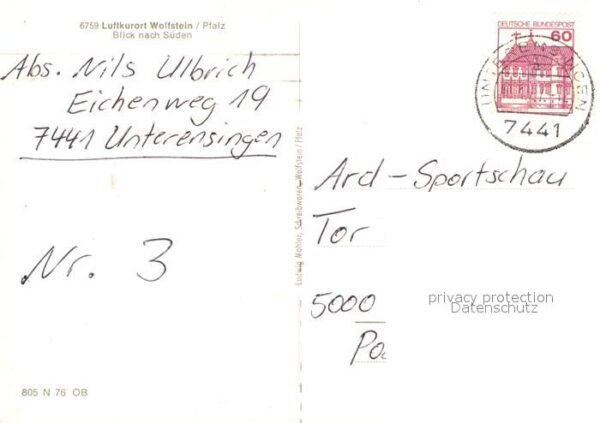 6759 Luftkurort Wolfstein / Pfalz
Blick nach Süden
Abs. Nils Ulbrich
Eichenweg 19
7441 Unterensingen
Nr. 3
805 N 76 OB
Ludwig Mohler, Schreibwaren, Wolfstein / Pfalz
DEUTSCHE BUNDESPOST
60
UNTERENSINGEN
7441
Ard-Sportschau
Tor
5000
privacy protection
Datenschutz